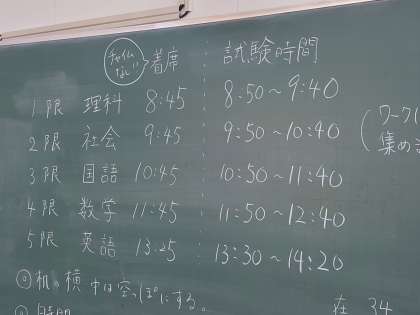 チャイム なし 着席 試験時間
1限 理科 8:45 8:50～9:40
2限 社会 9:45 9:50～10:40 (ワーク
集め
3限 国語 10:45 10:50～11:40
4限 数学 11:45 11:50～12:40
5限 英語 13:25 13:30～14:20
◎机の横 中は空っぽにする。
在 34